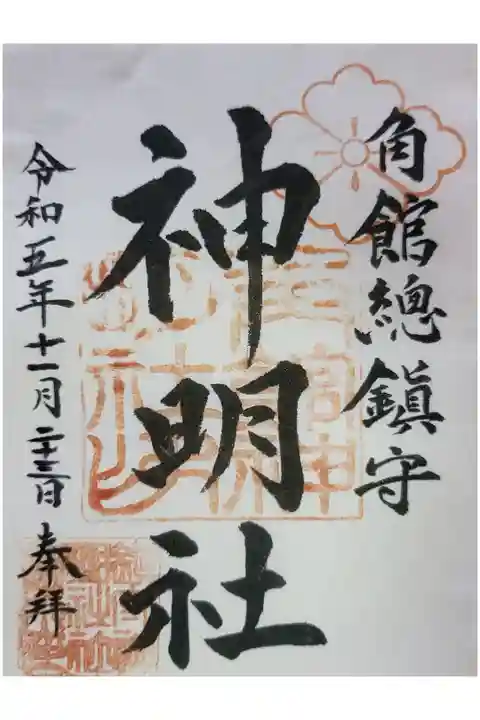 角館總鎮守
神明社
令和五年十一月二十三日 奉拜